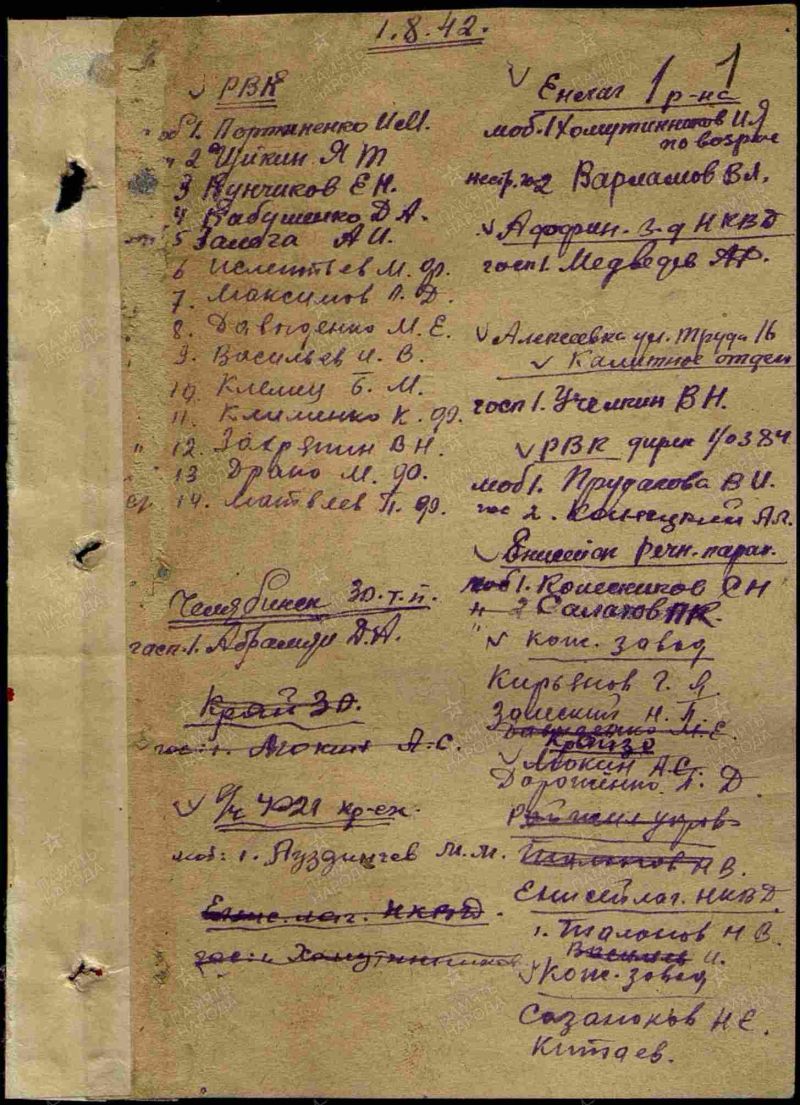 1.8.42.
РВК
моб 1. Портниненко И.М.
" 2 Цикин Я Т
3 Кунчиков Е.Н.
4 Бабушенко Д.А.
5 Залога А.И.
6 М. Ф.
7. Максимов П. Д.
8. Давыденко М. Е.
9. Васильев И. В.
10. Клемец Б. М.
11. Клименко К. Ф.
" 12. Закрятин В Н.
" 13 Драко М. Ф.
14. Матвеев П. Ф.
Челябинск 30.т.п.
госп. 1. Д.А.
Край ЗО.
гос: 1. Мокин А.С.
в/ч кр-ск.
моб: 1. М.М.
Енис. лаг. НКВД.
гос: 1 Хомутинников
1
Енлаг 1 р-на
моб. 1 Хомутинников И.Я
по возрас
нестр. 2 Варламов В.Л.
Аффин. з-д НКВД
госп 1. Медведев А.Р.
Алексеевка ул. Труда 16
отдел
госп 1. Учелкин В Н.
РВК дирек 1/0384
моб 1. Прудакова В И.
гос 2.
Енисейск речн. парах.
моб 1. Колесников С Н
н 2 Салатов П К.
" Кож. завод
Кирьянов Г. Я.
Залеский Н. П.
Давыденко М. Е.
Крайзо
Мокин А С.
Дорошенко П. Д
Талонов Н В.
Енисейлаг. НКВД.
1. Талонов Н В.
Васильев И.
Кож. завод
Сазанаков Н Е.
Китаев.